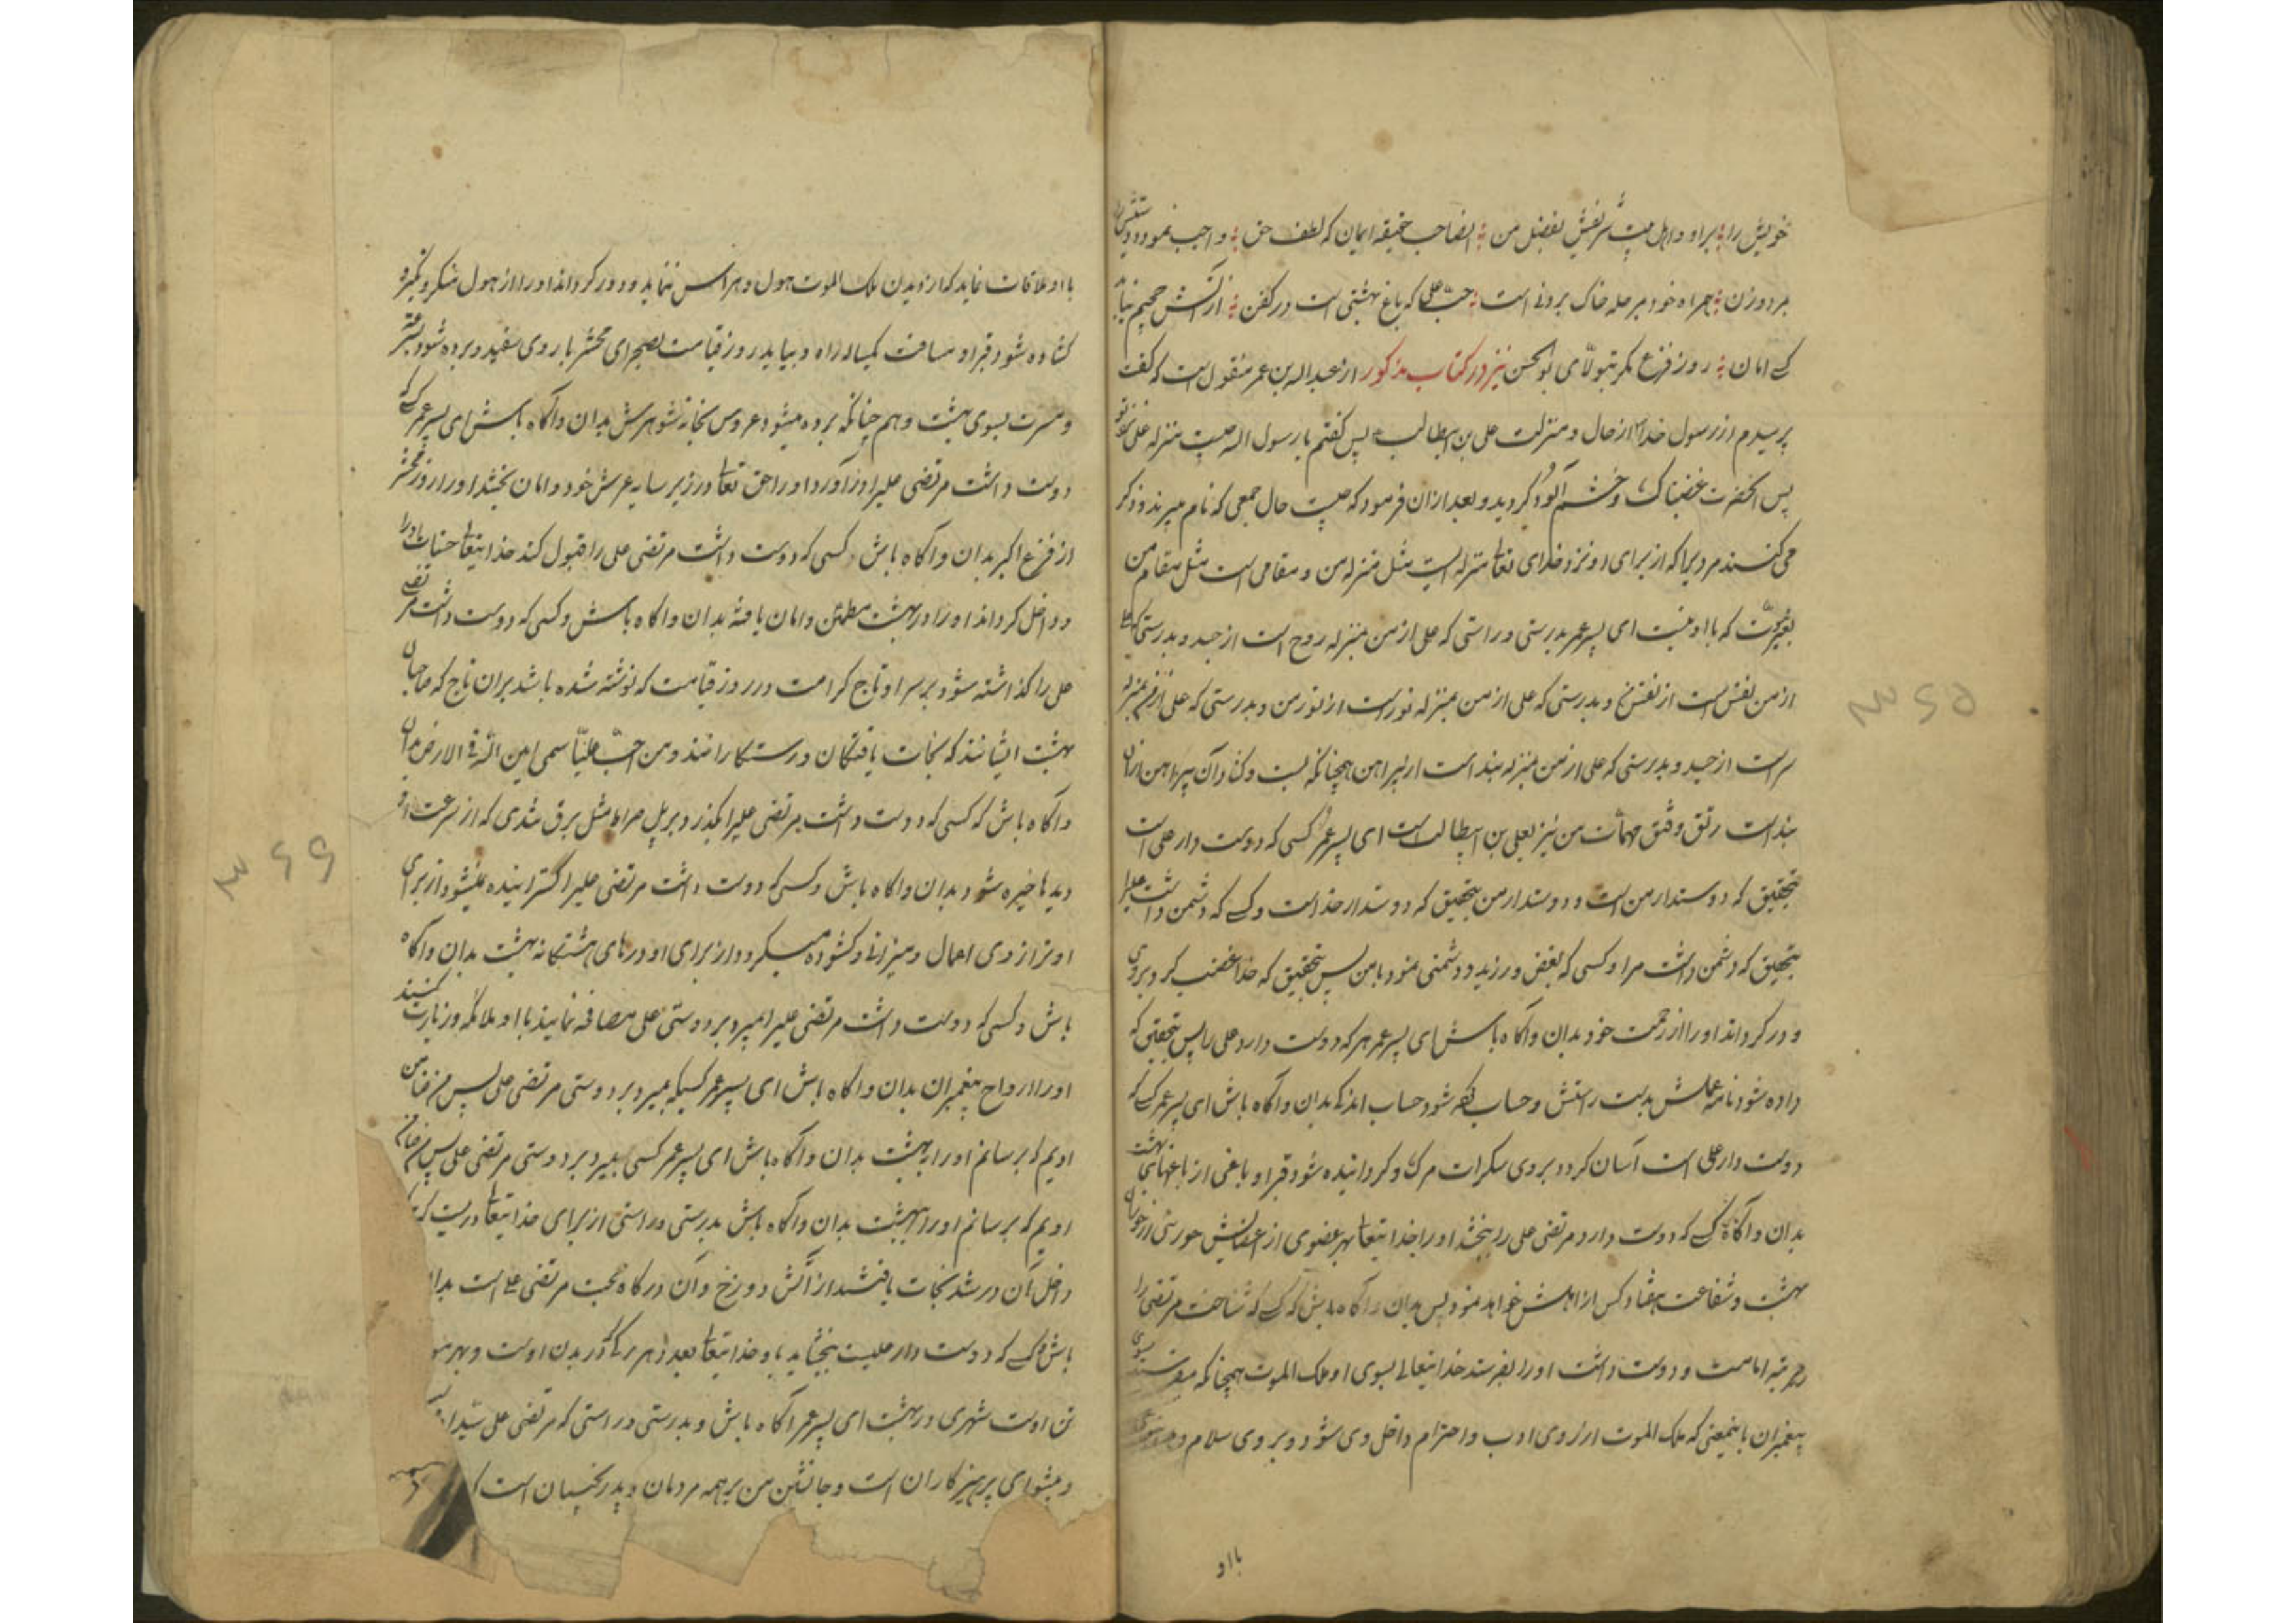 خویش را براو و اهل بیت شریفش بفضل من ایضا حب حقیقه ایمان که لطف حق واجب نمود دوستیش را
مرد و زن همراه خود بر حله خاک برونی است حب علی که باغ بهشتی است در کفن از آتش جحیم نیابد
کسی امان روز فزع مگر بتولای بوالحسن نیز در کتاب مذکور از عبدالله بن عمر منقول است که گفت
پرسیدم از رسول خدا از حال و منزلت علی بن ابیطالب پس گفتم یا رسول الله چیست منزله علی نزد تو
پس آنحضرت غضبناک و خشم آلود گردید و بعد از آن فرمود که چیست حال جمعی که نام میبرند و ذکر
می کنند مردیرا که از برای او نزد خدای تعا منزله ایست مثل منزله من و مقامی است مثل مقام من
بغیر نبوت که با او نیست ای پسر عمر بدرستی و راستی که علی از من بمنزله روح است از جسد و بدرستی که علی
از من نفس است از نفس و بدرستی که علی از من بمنزله نور است از نور من و بدرستی که علی از من بمنزله
سر است از جسد و بدرستی که علی از من بمنزله بند است از پیراهن همچنانکه بست و گشاد آن پیراهن از آن
بند است رتق و فتق مهمات من نیز بعلی بن ابیطالب است ای پسر عمر کسی که دوست دار علی است
بتحقیق که دوستدار من است و دوستدار من بتحقیق که دوستدار خداست و کسی که دشمن داشت علیرا
بتحقیق که دشمن داشت مرا و کسی که بغض ورزید و دشمنی نمود با من پس بتحقیق که خدا غضب کرد بر وی
و دور گرداند او را از رحمت خود بدان و آگاه باش ای پسر عمر هر که دوست دارد علی را پس بتحقیق که
داده شود نامه عملش بدست راستش و حساب کرده شود حساب اندک بدان و آگاه باش ای پسر عمر کسی که
دوست دار علی است آسان گردد بر وی سکرات مرگ و گردانیده شود قبر او باغی از باغهای بهشت
بدان و آگاه کسی که دوست دارد مرتضی علی را بخشد او را خدایتعا بهر عضوی از اعضایش حوری از حوران
بهشت و شفاعت هفتاد کس از اهلش خواهد نمود پس بدان و آگاه باش که کسی که شناخت مرتضی را
بمرتبه امامت و دوست داشت او را بفرستد خدایتعالی بسوی او ملک الموت همچنانکه میفرستد بسوی
پیغمبران باینمعنی که ملک الموت از روی ادب و احترام داخل وی شود و بر وی سلام و
با او
با او ملاقات نماید که از دیدن ملک الموت هول و هراس ننماید و دور گرداند او را از هول منکر و نکیر و
گشاده شود قبر او مسافت یکساله راه و بیاید روز قیامت بصحرای محشر با روی سفید و برده شود بعشرت
و مسرت بسوی بهشت و هم چنانکه برده میشود عروس بخانه شوهرش بدان و آگاه باش ای پسر عمر کسی که
دوست داشت مرتضی علیرا در آورد او را حق تعا در زیر سایه عرش خود و امان بخشد او را روز محشر
از فزع اکبر بدان و آگاه باش کسی که دوست داشت مرتضی علی را قبول کند خدایتعا حسنات او را
و داخل گرداند او را در بهشت مطمئن و امان یافته بدان و آگاه باش و کسی که دوست داشت مرتضی
علی را گذاشته شود بر سر او تاج کرامت در روز قیامت که نوشته شده باشد بر آن تاج که صاحبان
بهشت ایشانند که نجات یافتگان و رستگارانند و من احب علیّا سمی امین الله فی الارض بدان
و آگاه باش که کسی که دوست داشت مرتضی علیرا بگذرد بر پل صراط مثل برق شدی که از سرعت او
دیدها خیره شود بدان و آگاه باش و کسی که دوست داشت مرتضی علیرا گسترانیده نمیشود از برای
او ترازوی اعمال و میزانی و گشوده میگردد از برای او درهای هشتگانه بهشت بدان و آگاه
باش و کسی که دوست داشت مرتضی علیرا بمیرد بر دوستی علی مصافحه نمایند با او ملائکه و زیارت کنند
او را ارواح پیغمبران بدان و آگاه باش ای پسر عمر کسیکه بمیرد بر دوستی مرتضی علی پس من ضامن
اویم که برسانم او را به بهشت بدان و آگاه باش ای پسر عمر کسی بمیرد بر دوستی مرتضی علی پس من ضامن
اویم که برسانم او را ببهشت بدان و آگاه باش بدرستی و راستی از برای خدایتعا دریست که
داخل آن در شد نجات یافت از آتش دوزخ و آن درگاه محبت مرتضی علی است
باش و کسی که دوست دار علیست ببخشاید باو خدایتعا بعدد هر رگی که در بدن اوست و بهر
تن اوست شهری در بهشت ای پسر عمر آگاه باش و بدرستی و راستی که مرتضی علی
و پیشوای پرهیزکاران است و جانشین من بر همه مردمان و پدر است